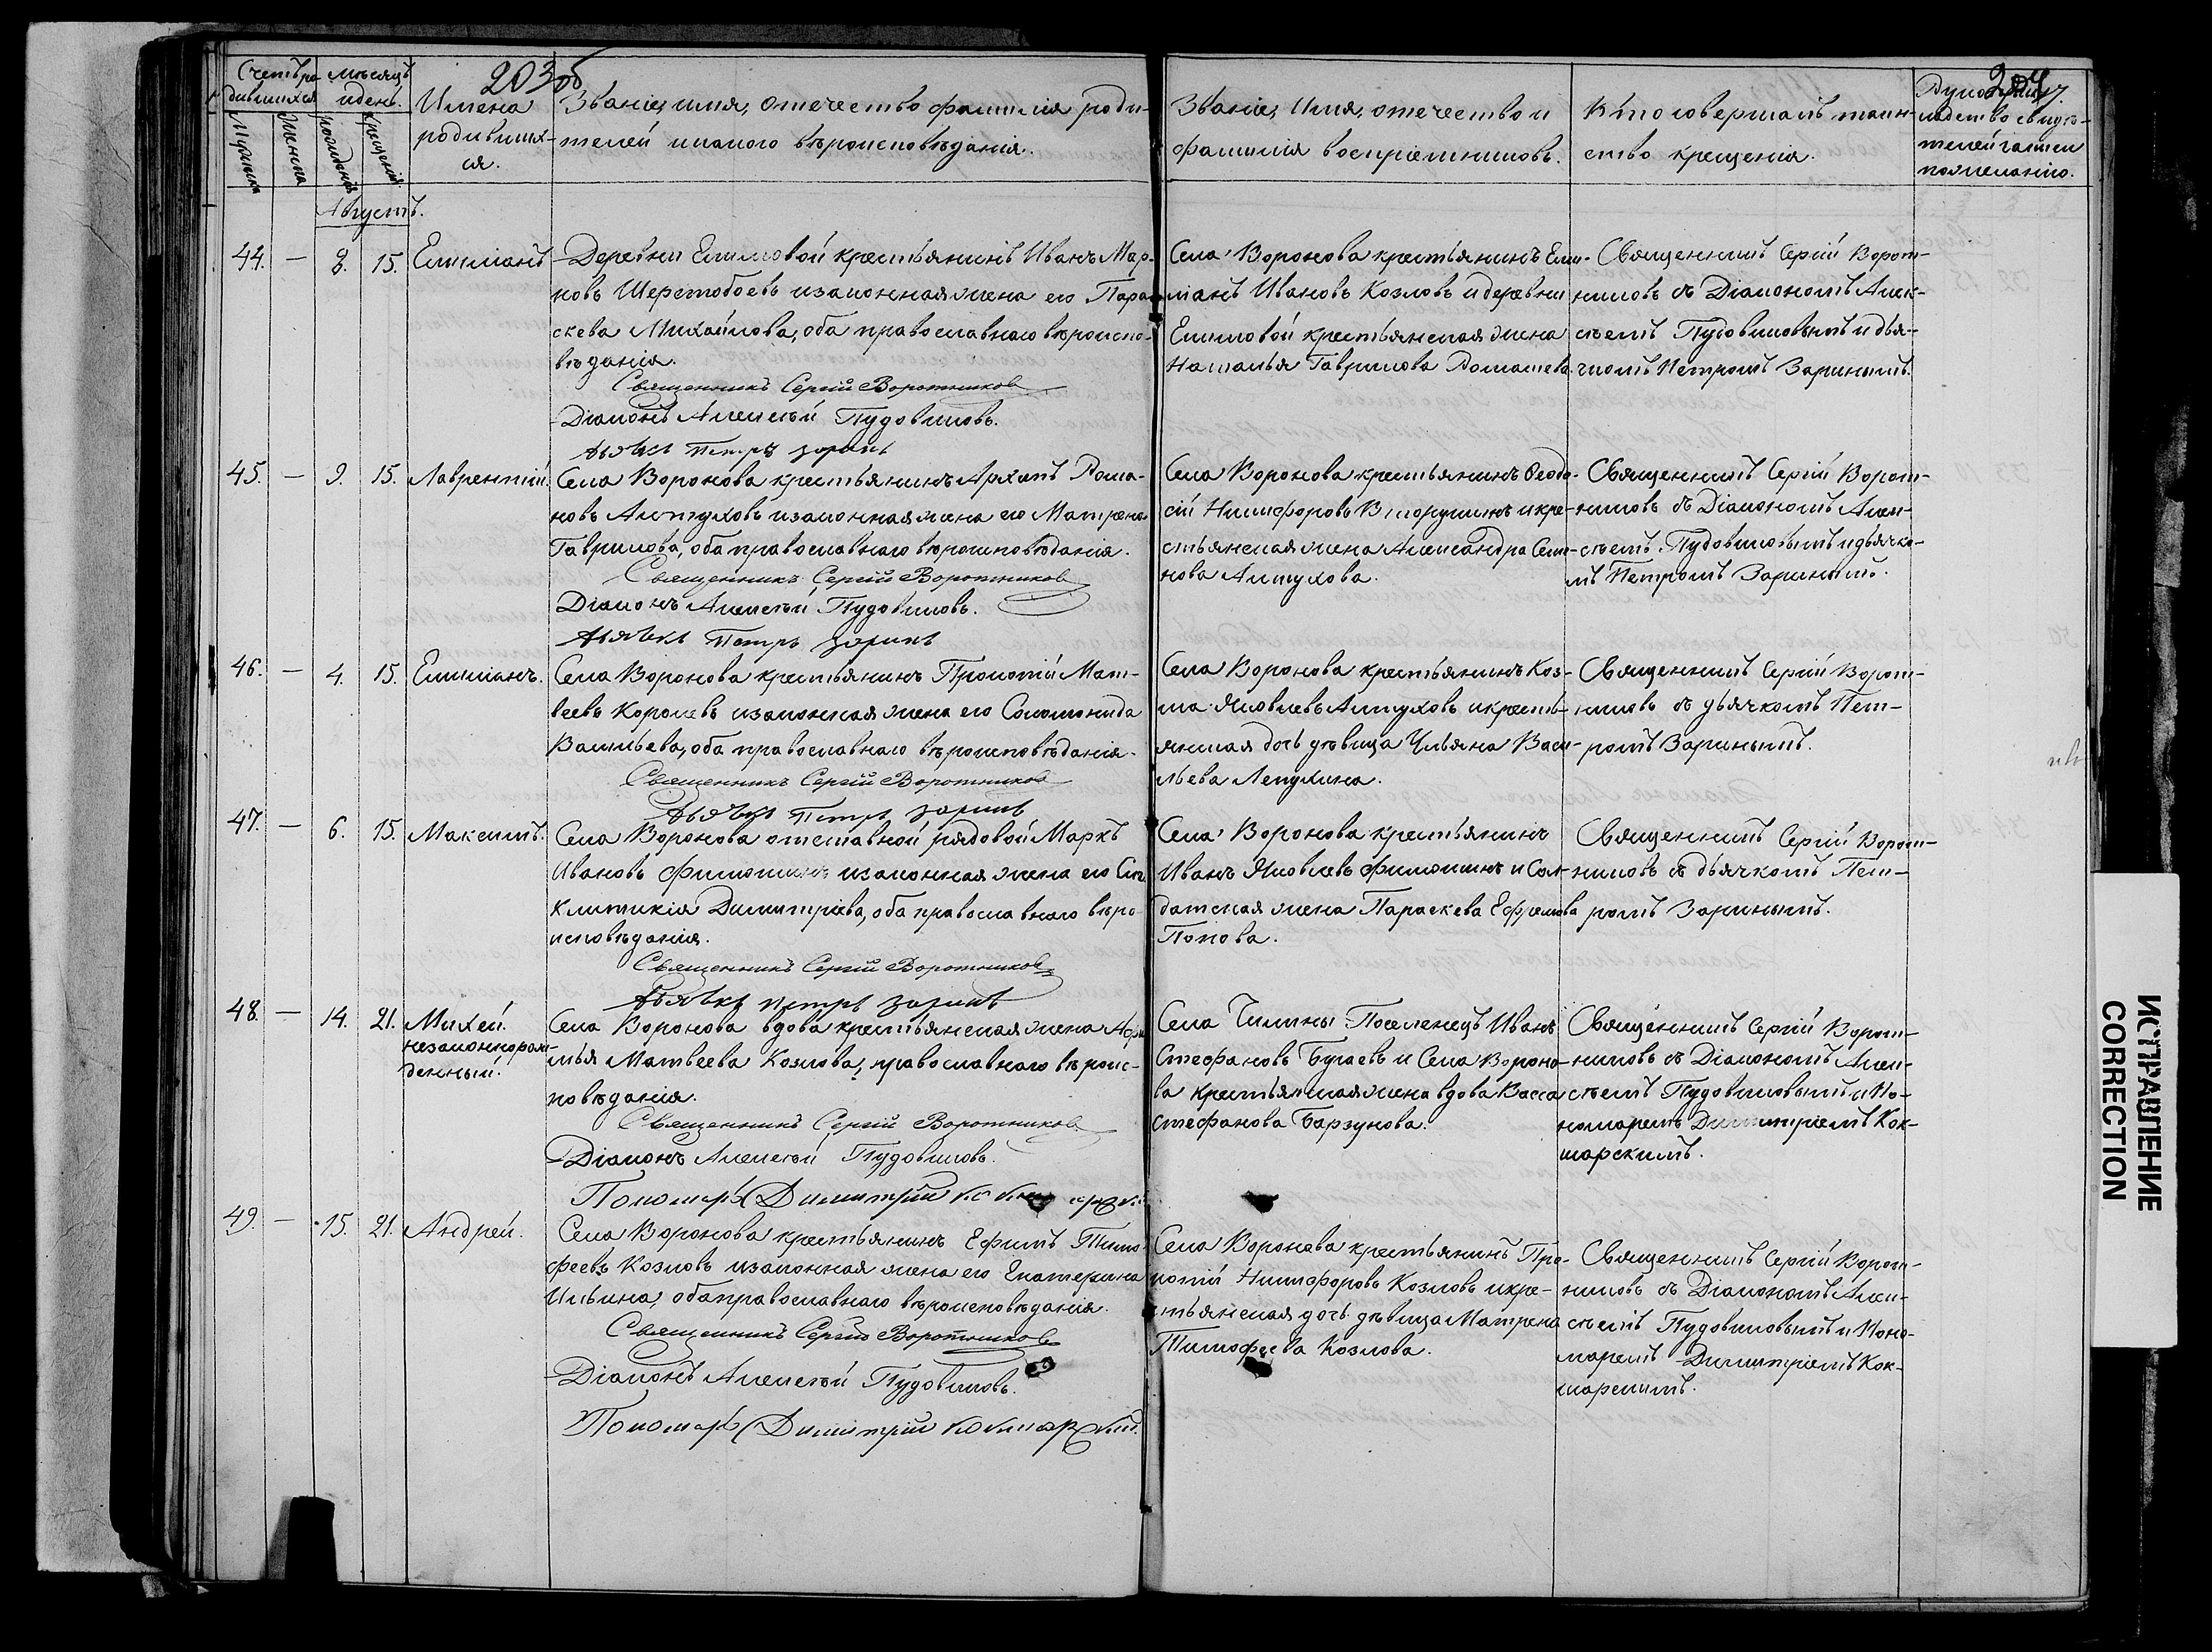 203об
204
Счетъ ро-
дившихся
мѣсяцъ
и день.
Имена
родивших-
ся.
Званіе, имя, отечество фамилія роди-
телей и какого вѣроисповѣданія.
Званіе, Имя, отечество и
фамилія воспріемниковъ.
Кто совершалъ таин-
ство крещенія.
телей
Мужеска
Женска
рожденія
крещенія
Августъ.
44. — 8. 15. Емиліанъ
Деревни Еримовой крестьянинъ Иванъ Мар-
ковъ Шерстобоевъ и законная жена его Пара-
скева Михайлова, оба православнаго вѣроиспо-
вѣданія.
Священникъ Сергій Воротников
Діаконъ Алексѣй Пудовиковъ.
Дьячкъ Петръ Заринъ
Села Воронова крестьянинъ Еми-
ліанъ Ивановъ Козловъ и деревни
крестьянская жена
Наталья Гаврилова Ромашева.
Священникъ Сергій Ворот-
никовъ съ Діакономъ Алек-
сѣемъ Пудовиковымъ и дья-
чкомъ Петромъ Заринымъ.
45. — 9. 15. Лаврентій.
Села Воронова крестьянинъ Архипъ Рома-
новъ Алтуховъ и законная жена его Матрена
Гаврилова, оба православнаго вѣроисповѣданія.
Священникъ Сергій Воротников
Діаконъ Алексѣй Пудовиковъ.
Дьячкъ Петръ Заринъ
Села Воронова крестьянинъ Феодо-
сій Никифоровъ Вторушинъ и кре-
стьянская жена Александра Семе-
нова Алтухова.
Священникъ Сергій Ворот-
никовъ съ Діакономъ Алек-
сѣемъ Пудовиковымъ и дьячко-
мъ Петромъ Заринымъ.
46. — 4. 15. Емиліанъ.
Села Воронова крестьянинъ Прокопій Мат-
веевъ Королевъ и законная жена его Соломонида
Васильева, оба православнаго вѣроисповѣданія.
Священникъ Сергій Воротников
Дьячкъ Петръ Заринъ
Села Воронова крестьянинъ Коз-
ма Яковлевъ Алтуховъ и кресть-
янская дочь дѣвица Ульяна Васи-
льева Лепухина.
Священникъ Сергій Ворот-
никовъ съ дьячкомъ Пет-
ромъ Заринымъ.
47. — 6. 15. Максимъ.
Села Воронова отставной рядовой Маркъ
Ивановъ Филошинъ и законная жена его Син-
клитикія Димитріева, оба православнаго вѣро-
исповѣданія.
Священникъ Сергій Воротников
Дьячкъ Петръ Заринъ
Села Воронова крестьянинъ
Иванъ Яковлевъ Филошинъ и Сол-
датская жена Параскева Ефремова
Попова.
Священникъ Сергій Ворот-
никовъ съ дьячкомъ Пет-
ромъ Заринымъ.
48. — 14. 21. Михей.
незаконнорож-
денный.
Села Воронова вдова крестьянская жена
Матвеева Козлова, православнаго вѣроис-
повѣданія.
Священникъ Сергій Воротников
Діаконъ Алексѣй Пудовиковъ.
Пономарь Димитрій
Села Чилины Поселенецъ Иванъ
Стефановъ Бугаевъ и Села Вороно-
ва крестьянская жена вдова Васса
Стефанова Барзунова.
Священникъ Сергій Ворот-
никовъ съ Діакономъ Алек-
сѣемъ Пудовиковымъ и По-
номаремъ Димитріемъ Кок-
шарскимъ.
49. — 15. 21. Андрей.
Села Воронова крестьянинъ Ефимъ Тимо-
феевъ Козловъ и законная жена его Екатерина
Ильина, оба православнаго вѣроисповѣданія.
Священникъ Сергій Воротников
Діаконъ Алексѣй Пудовиковъ.
Пономарь Димитрій Кокшарскій.
Села Воронова крестьянинъ Про-
копій Никифоровъ Козловъ и кре-
стьянская дочь дѣвица Матрена
Тимофеева Козлова.
Священникъ Сергій Ворот-
никовъ съ Діакономъ Алек-
сѣемъ Пудовиковымъ и Поно-
маремъ Димитріемъ Кок-
шарскимъ.
ИСПРАВЛЕНИЕ
CORRECTION